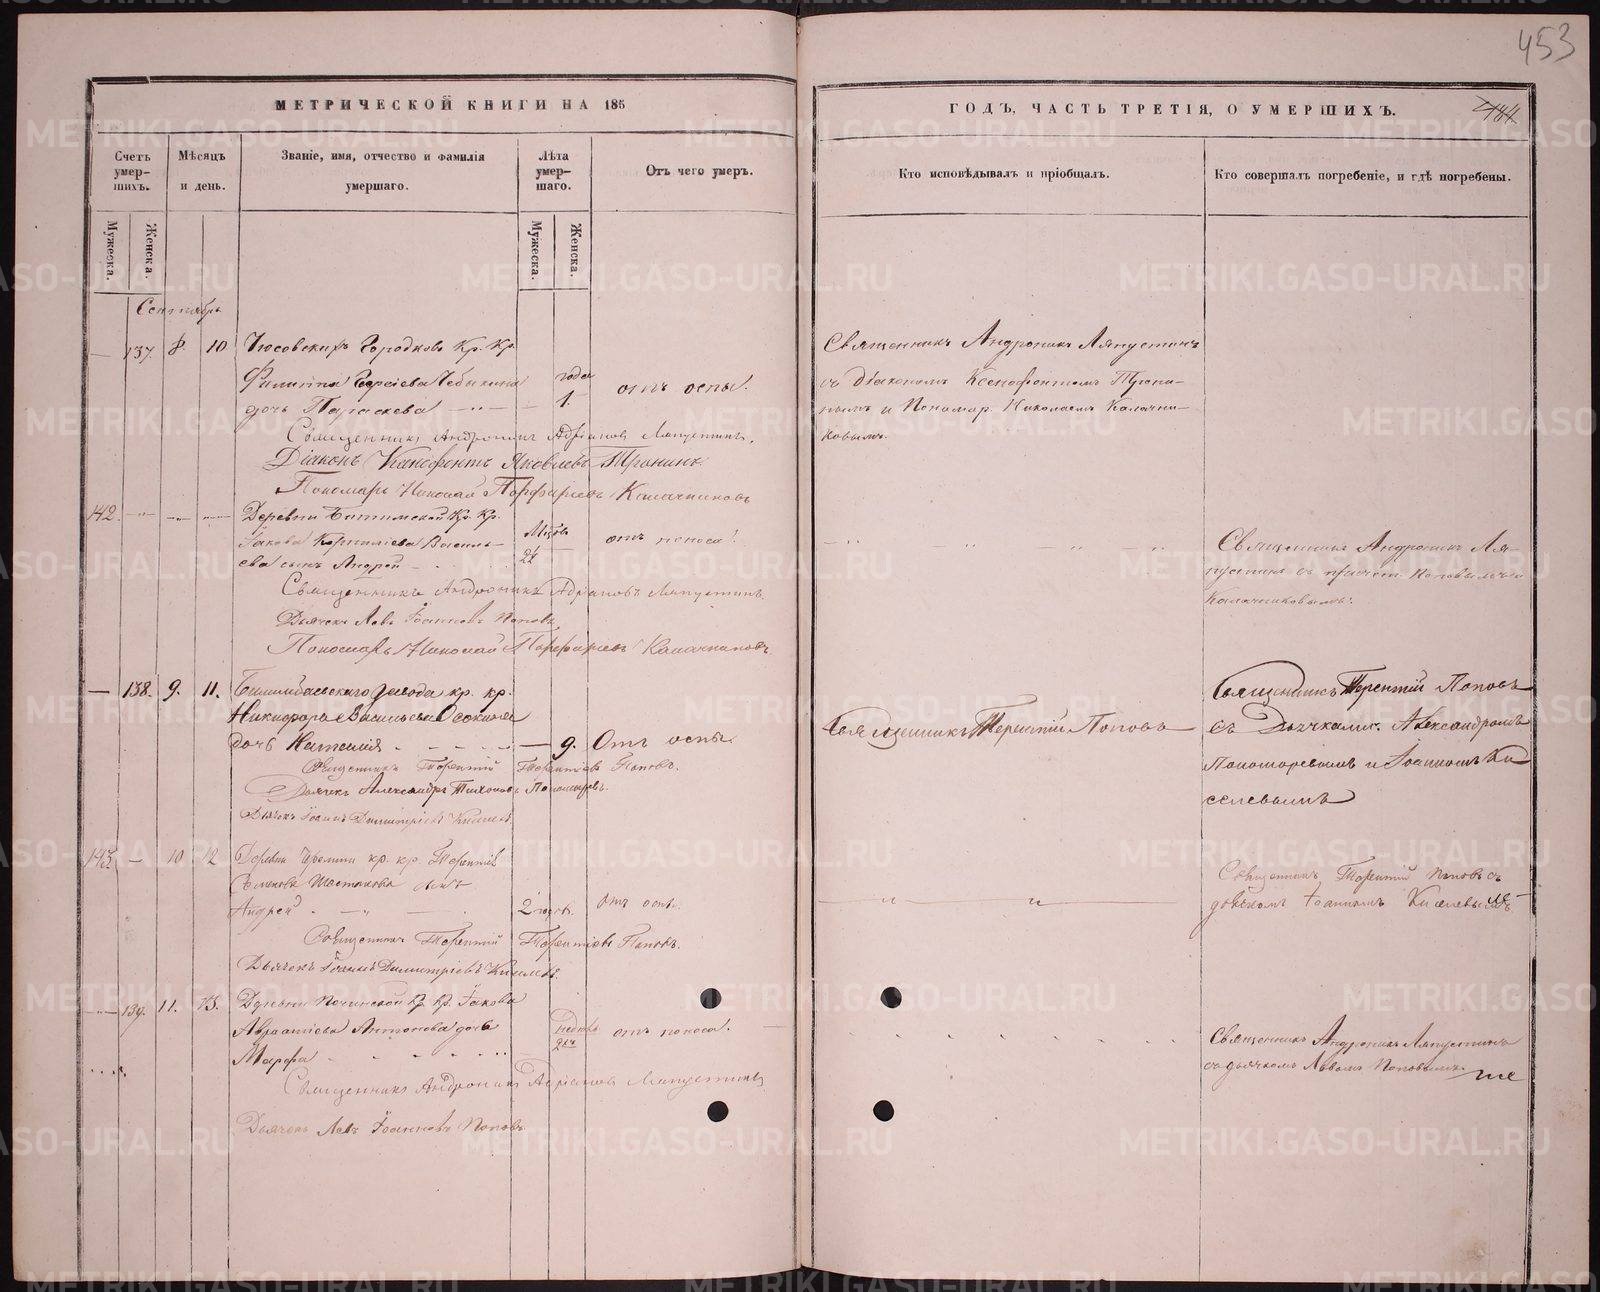 453
МЕТРИЧЕСКОЙ КНИГИ НА 185
ГОДЪ, ЧАСТЬ ТРЕТІЯ, О УМЕРШИХЪ.
184
Счетъ умер-шихъ.
Мѣсяцъ и день.
Званіе, имя, отчество и фамилія умершаго.
Лѣта умер-шаго.
Отъ чего умеръ.
Кто исповѣдывалъ и пріобщалъ.
Кто совершалъ погребеніе, и гдѣ погребены.
Мужеска.
Женска.
Мужеска.
Женска.
Сентябрь
137. 8. 10 Чюсовскихъ Городковъ Кр. Кр.
Филиппа Сергіева Чебыкина года
дочь Параскева 1. отъ оспы.
Священникъ Андроникъ Ляпустинъ
съ діакономъ Ксенофонтомъ Трони-
нымъ и Пономар. Николаемъ Калачни-
ковымъ.
Священникъ Андроникъ Адріановъ Ляпустинъ.
Діаконъ Ксенофонтъ Яковлевъ Тронинъ
Пономарь Николай Порфирьевъ Калачниковъ
142. Деревни Битимской Кр. Кр.
Іакова Корниліева Василь-
ева сынъ Андрей отъ поноса.
Священникъ Андроникъ Ля-
пустинъ съ причет. Поповымъ и
Калачниковымъ.
Священникъ Андроникъ Адріановъ Ляпустинъ.
Дьячекъ Левъ Іоанновъ Поповъ
Пономарь Николай Порфирьевъ Калачниковъ
138. 9. 11. Билимбаевскаго завода кр. кр.
Никифора Васильева Осокина
дочь Наталия 9. Отъ оспы.
Священникъ Терентій Поповъ
Священникъ Терентій Поповъ
съ Дьячками: Александромъ
Пономаревымъ и Іоанномъ Ки
селевымъ
Священникъ Терентій Терентіевъ Поповъ.
Дьячекъ Александръ Тихоновъ Пономаревъ.
Дьячекъ Іоаннъ Димитріевъ Киселевъ
143. 10 12 Деревни Чремши кр. кр. Терентія
Семенова Шестакова сынъ
Андрей 2 годов. Отъ оспы.
Священникъ Терентій Поповъ съ
дьячкомъ Іоанномъ Киселевымъ
Священникъ Терентій Терентіевъ Поповъ.
Дьячекъ Іоаннъ Димитріевъ Киселевъ.
139. 11. 13. Деревни Починской Кр. Кр. Іакова
Авраамiева Антонова дочь
Марфа отъ поноса.
Священникъ Андроникъ Ляпустинъ
съ дьячкомъ Левомъ Поповымъ
Священникъ Андроникъ Адріановъ Ляпустинъ
Дьячекъ Левъ Іоанновъ Поповъ
METRIKI.GASO-URAL.RU